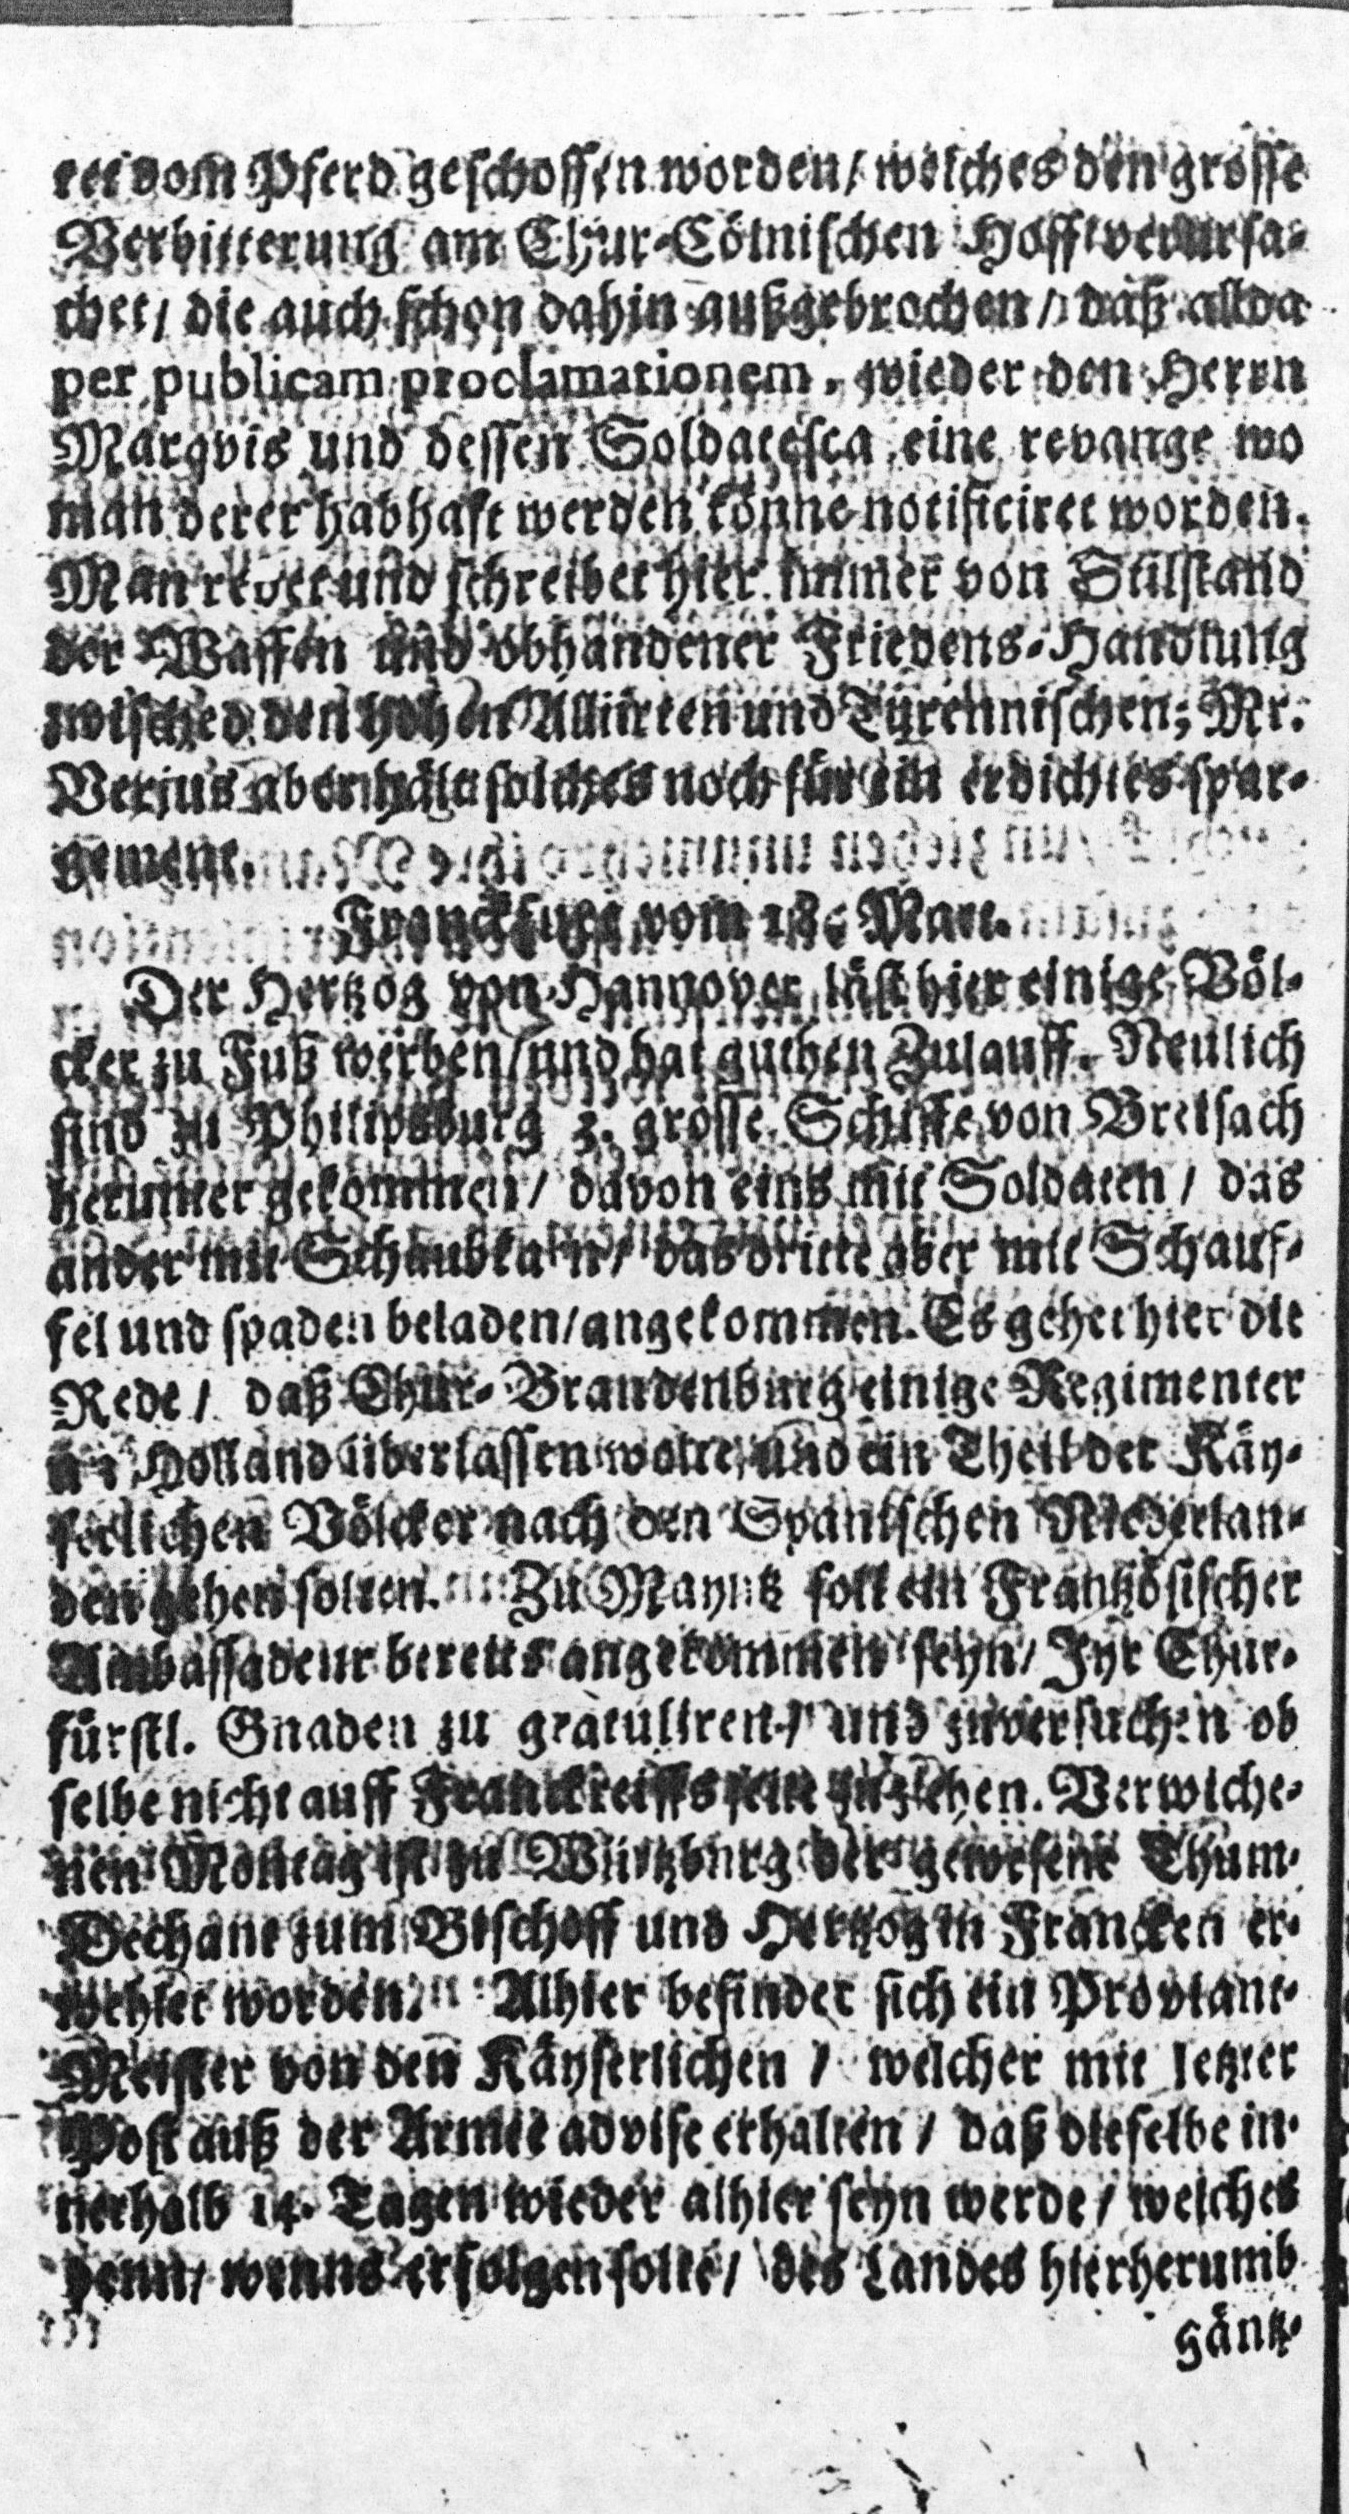 ter vom Pferd geschossen worden / welches den grosse
Verbitterung am Chur-Cölnischen Hoff verursa-
chet / die auch schon dahin außgebrochen / daß allda
per publicam proclamationem, wieder den Herrn
Marqvis und dessen Soldatesca eine revange wo
man derer habhaft werden könne notificiret worden.
Man redet und schreibet hier immer von Stilstand
der Waffen und obhandener Friedens-Handlung
zwisched den hohen Alliirten und Türennischen; Mr.
Verjus aber hält solches noch für ein erdichtes spar-
gement.
Franckfurt vom 18. Mart.
Der Hertzog von Hannover läst hier einige Völ-
cker zu Fuß werben / und hat guthen Zulauff. Neulich
sind zu Philipsburg 3. grosse Schiffe von Breisach
herunter gekommen / davon eins mit Soldaten / das
ander mit Schaubkarn / das dritte aber mit Schauf-
fel und spaden beladen / angekommen. Es gehet hier die
Rede / daß Chur-Brandenburg einige Regimenter
an Holland überlassen wolte, und ein Theil der Käy-
serlichen Völcker nach den Spanischen Niederlan-
den gehen solten. Zu Mayntz soll ein Frantzösischer
Ambassadeur bereits angekommen seyn / Ihr Chur-
fürstl. Gnaden zu gratuliren / und zuversuchen ob
selbe nicht auff Franckreichs seite zuziehen. Verwiche-
nen Montag ist zu Würtzburg der gewesene Thum-
Dechant zum Bischoff und Hertzog in Francken er-
wehlet worden. Alhier befindet sich ein Proviant-
Meister von den Käyserlichen / welcher mit letzter
Post auß der Armee advise erhalten / daß dieselbe in-
nerhalb 14. Tagen wieder alhier seyn werde / welches
denn / wenns erfolgen solte / des Landes hierherumb
gäntz-